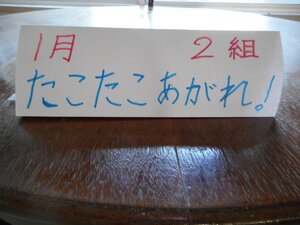 1月 2組
たこたこあがれ!